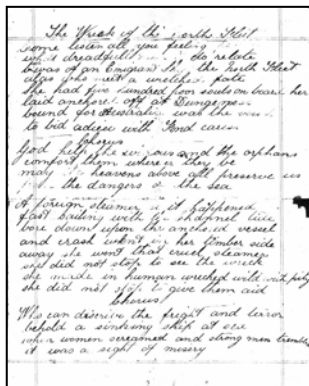 The Wreck of the North Fleet
Come listen all you feeling
dreadful do relate
twas of an Emigrant Ship the North Fleet
alas who meet a wretched fate
She had five hundred poor souls on board her
laid anchored off at Dungeness
bound for Australia was the
to bid adieu with fond caress
Chorus
God help the widows and the orphans
comfort them where ere they be
may heavens above all preserve us
the dangers of the sea
A foreign steamer it happened
fast sailing with the channel tide
bore down upon the anchored vessel
and crash went in her timber side
away she went that cruel steamer
did not stop to see the wreck
she made in human wrecked wild with pity
she did not stop to give them aid
Chorus
Who can describe the fright and terror
behold a sinking ship at sea
when women screamed and strong men trembled
it was a sight of misery